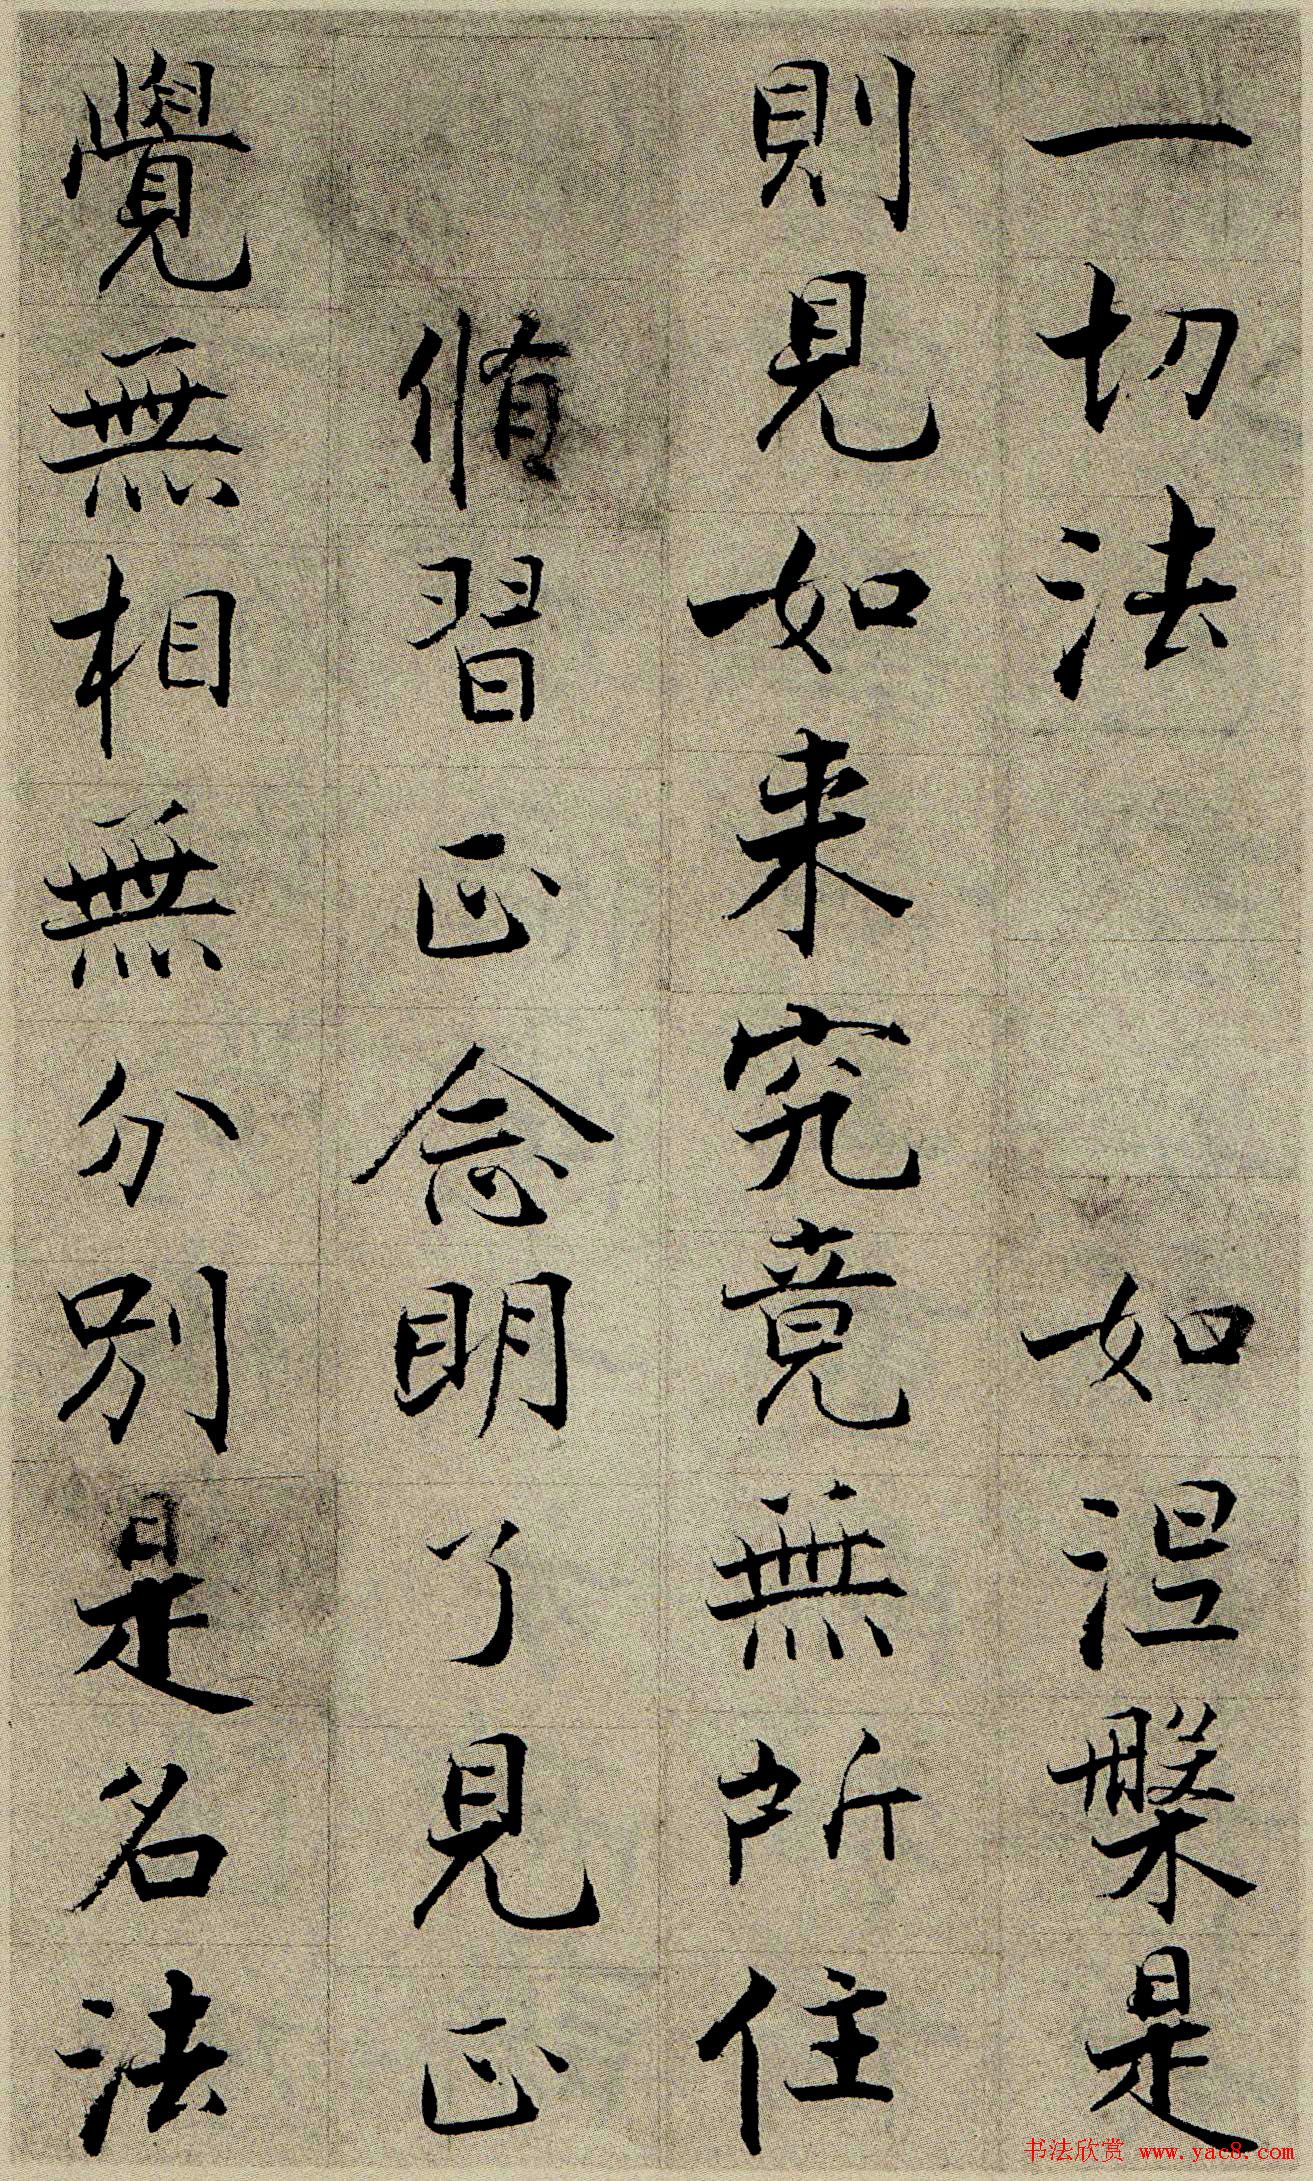 一切法　　如涅槃是
則見如来究竟無所住
脩習正念明了見正
覺無相無分别是名法
书法欣赏 www.yac8.com